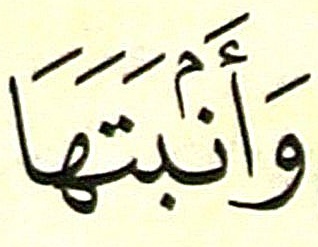 وَأَنۢبَتَهَا